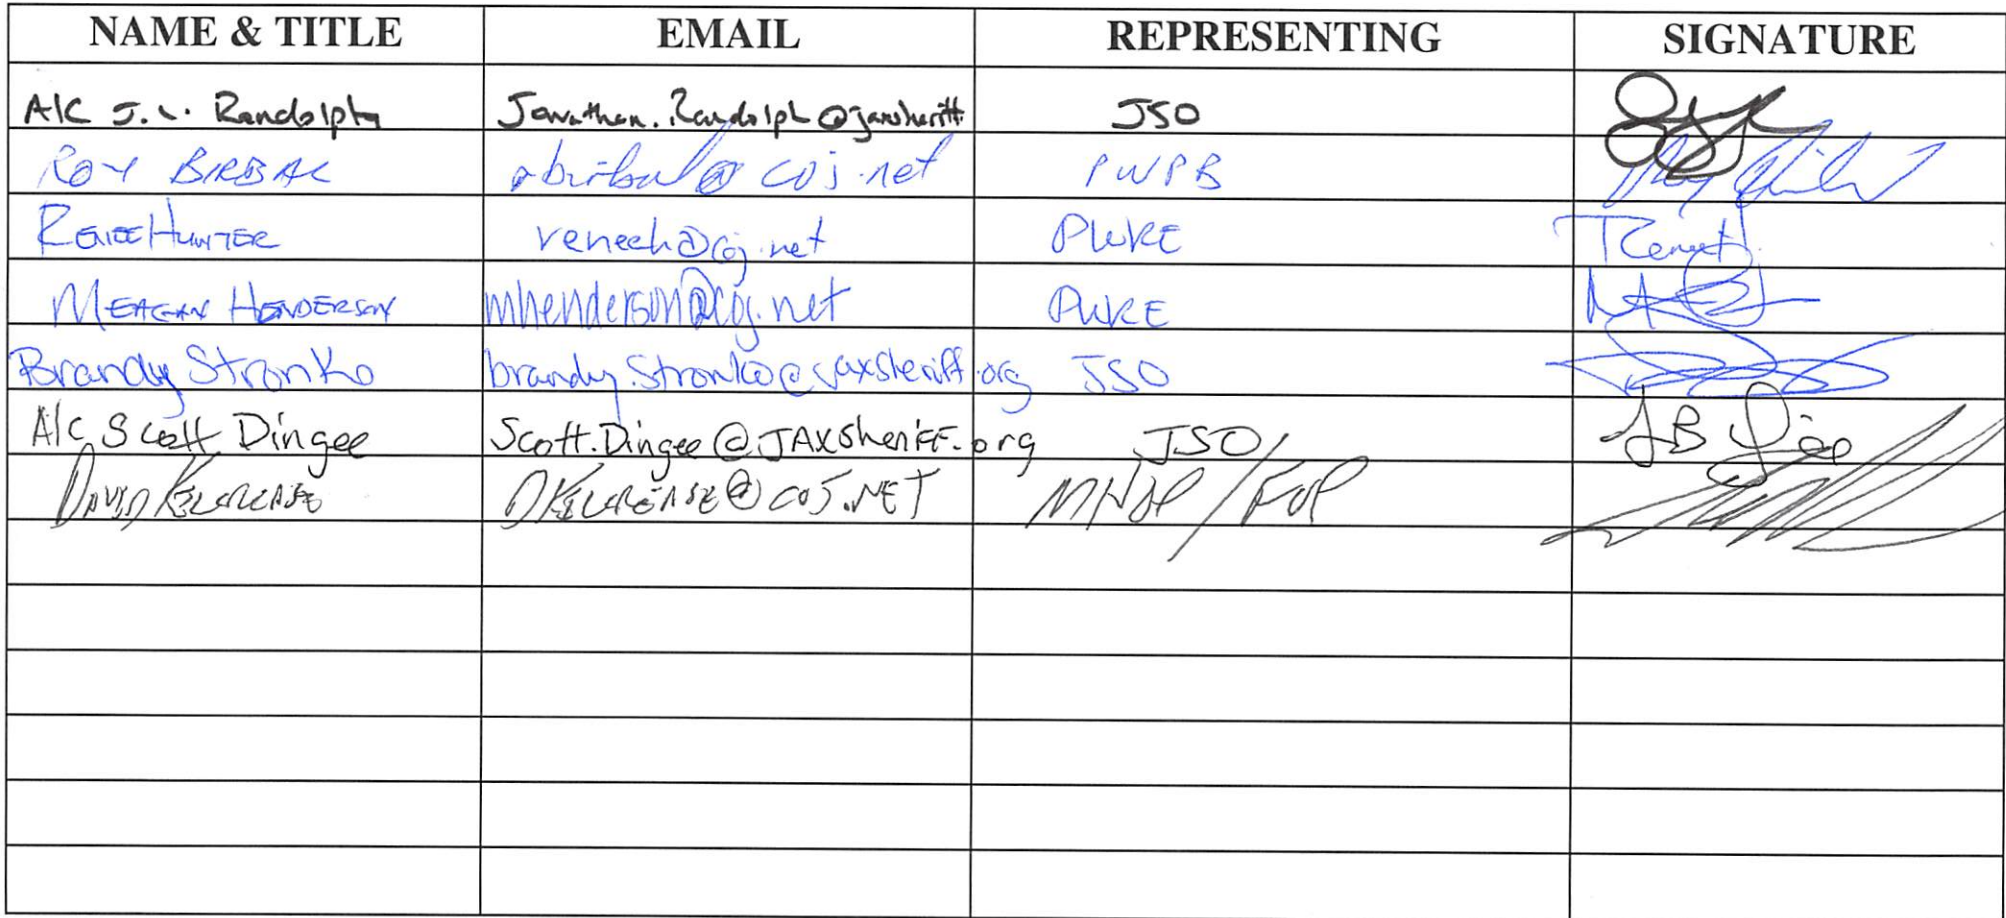 NAME & TITLE EMAIL REPRESENTING SIGNATURE
A/C J.L. Randolph Jonathan.Randolph@jaxsheriff JSO
ROY BIRBAL rbirbal@coj.net PWPB
RENEE HUNTER reneeh@coj.net PWRE
MEAGAN HENDERSON mhenderson@coj.net PWRE
Brandy Stronko brandy.stronko@jaxsheriff.org JSO
A/C Scott Dingee Scott.Dingee@JAXSheriff.org JSO
DAVID KILCREASE DKILCREASE@COJ.NET / FOP